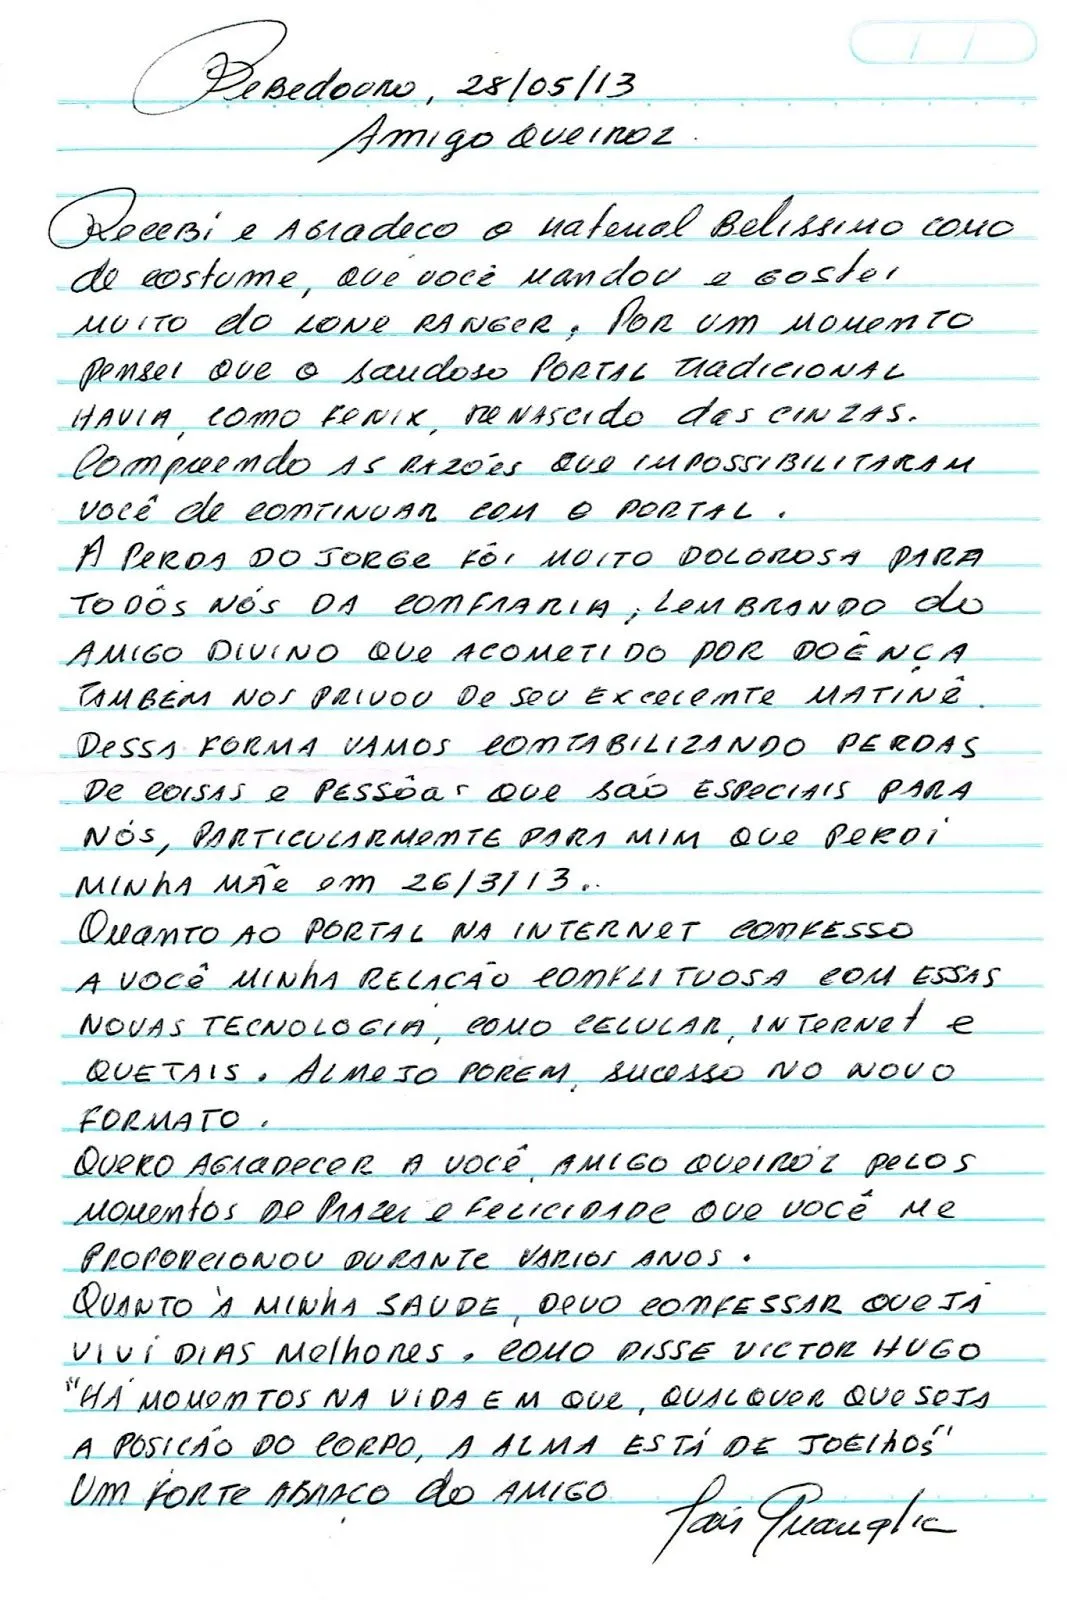 Bebedouro, 28/05/13
Amigo Queiroz.
Recebi e Agradeco o material Belissimo como
de costume, que você mandou e gostei
muito do LONE RANGER. POR UM MOMENTO
pensei que o saudoso PORTAL TRADICIONAL
HAVIA, COMO FENIX, RENASCIDO das CINZAS.
Compreendo AS RAZÕES QUE IMPOSSIBILITARAM
VOCÊ de CONTINUAR COM O PORTAL.
A PERDA DO JORGE FÔI MUITO DOLOROSA PARA
TODÔS NÓS DA CONFRARIA, LEMBRANDO do
AMIGO DIVINO QUE ACOMETIDO POR DOÊNÇA
TAMBÉM NOS PRIVOU DE SEU EXCELENTE MATINÊ.
DESSA FORMA VAMOS CONTABILIZANDO PERDAS
DE COISAS e PESSÔAS QUE são ESPECIAIS PARA
NÓS, PARTICULARMENTE PARA MIM QUE PERDI
MINHA MÃE em 26/3/13..
QUANTO AO PORTAL NA INTERNET CONFESSO
A VOCÊ MINHA RELACÃO CONFLITUOSA COM ESSAS
NOVAS TECNOLOGIA, COMO CELULAR, INTERNET e
QUETAIS. ALMEJO POREM, SUCESSO NO NOVO
FORMATO.
QUERO AGRADECER A VOCÊ, AMIGO QUEIRÓZ PELOS
MOMENTOS DE PRAZER e FELICIDADE QUE VOCÊ ME
PROPORCIONOU DURANTE VARIOS ANOS.
QUANTO À MINHA SAUDE, DEVO CONFESSAR QUE JÁ
VIVI DIAS Melhores. COMO DISSE VICTOR HUGO
"HÁ MOMENTOS NA VIDA EM QUE, QUALQUER QUE SEJA
A POSICÃO DO CORPO, A ALMA ESTÁ DE JOELHOS"
UM FORTE ABRAÇO do AMIGO